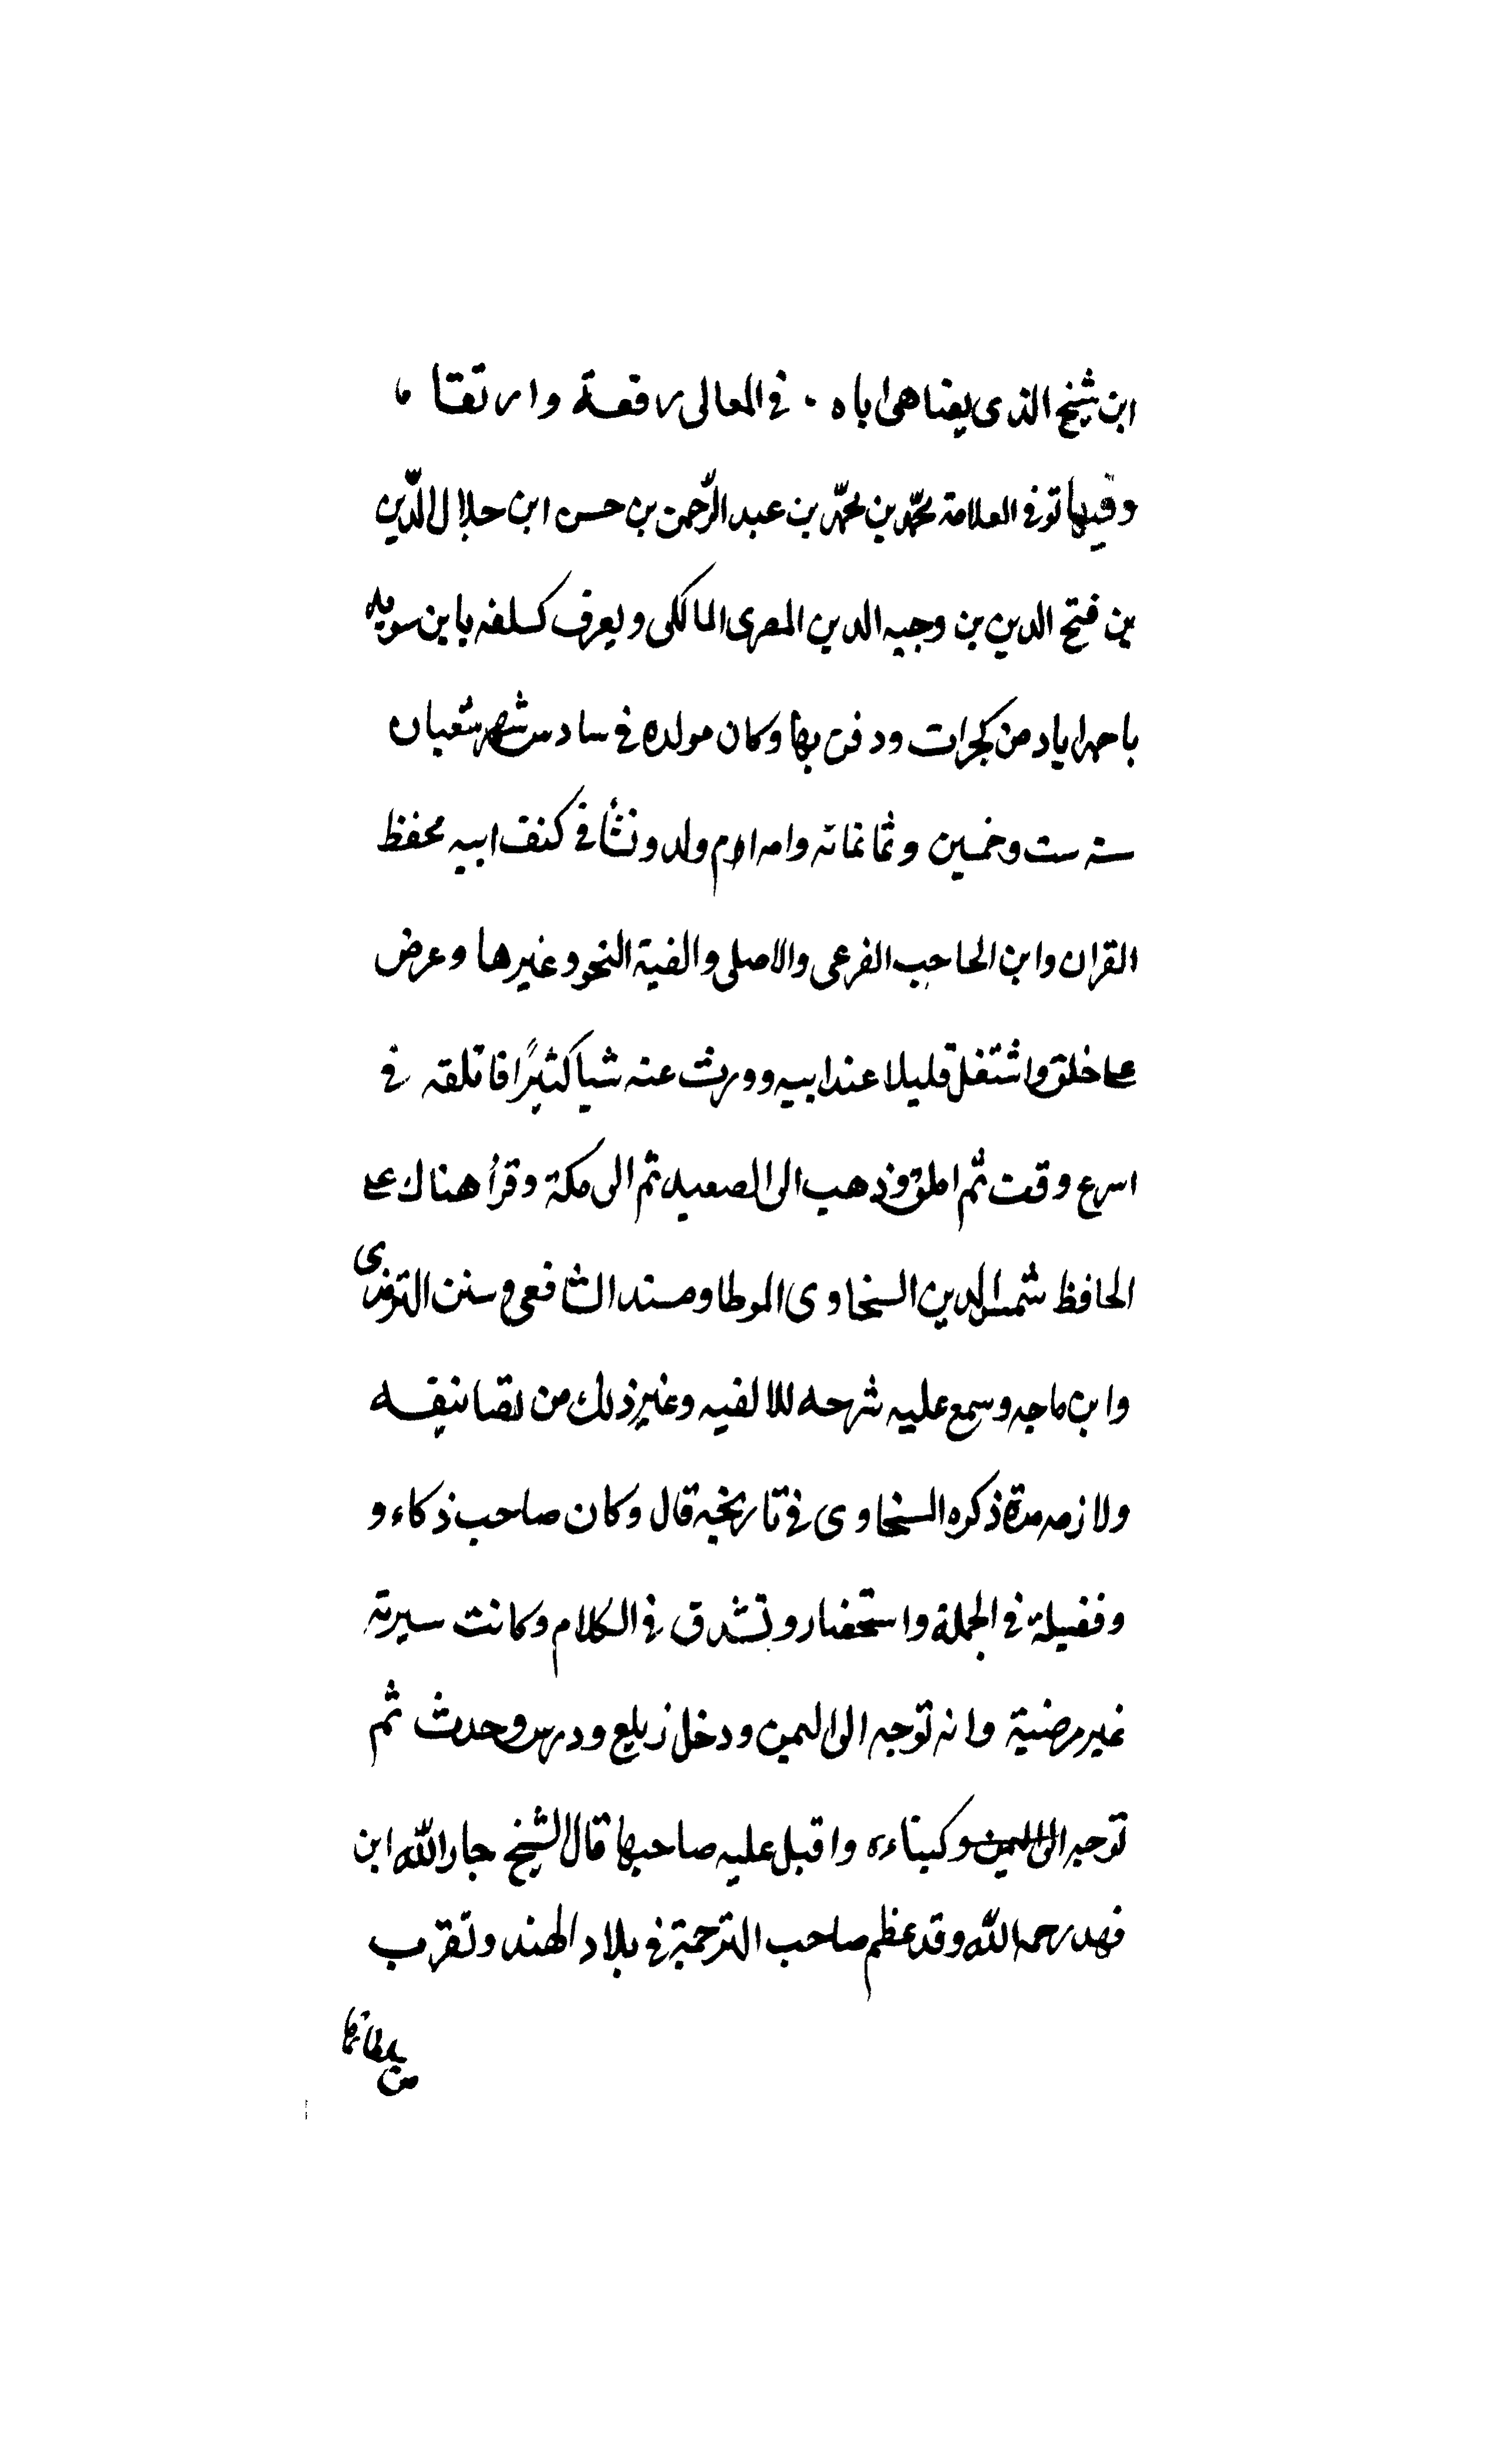 ابن شيخ الذى يضاهى اباه ٠ فى المعالى رفعة وارتقا
وفيها توفى العلامة محمّد بن محمّد بن عبد الرّحمن بن حسن ابن جلال الدّين
بن فتح الدين بن وجيه الدين المصرى المالكى ويعرف كسلفه بابن سويد
باحمداباد من كجرات ودفن بها وكان مولده فى سادس شهر شعبان
سنه ست وخمسين وثمانمائه وامه ام ولد ونشأ فى كنف ابيه محفظ
القران وابن الحاجب الفرعى والاصلى والفية النحو وغيرها وعرض
على خلق واشتغل قليلا عند ابيه وورث عنه شيا كثيرًا فاتلفه فى
اسرع وقت ثم املق وذهب الى الصعيد ثم الى مكة وقرأ هناك على
الحافظ شمس الدين السخاوى الموطا ومسند الشافعى وسنن الترمذى
وابن ماجه وسمع عليه شرحه للالفيه وغير ذلك من تصانيفه
ولازمه مدة ذكره السخاوى فى تاريخه قال وكان صاحب ذكاء و
وفضيلة فى الجملة واستحضار وتشدق فى الكلام وكانت سيرته
غير مرضية وانه توجه الى اليمن ودخل زيلع ودرس وحدث ثم
توجه الى اليمن وكبناءه واقبل عليه صاحبها قال الشيخ جار الله ابن
فهد رحمه الله وقد عظم صاحب الترجمة فى بلاد الهند وتقرب
من سلطانها